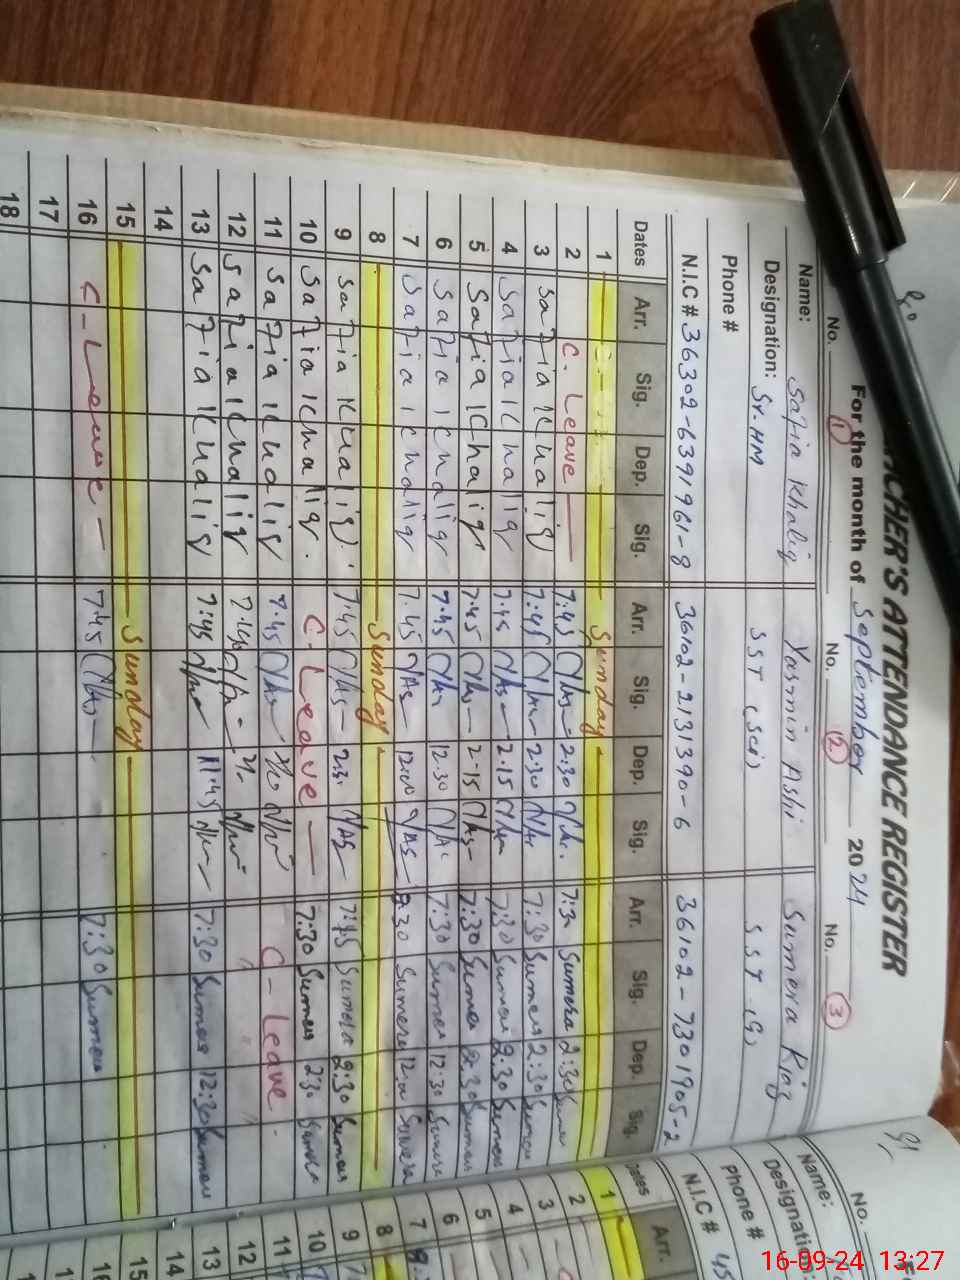 TEACHER'S ATTENDANCE REGISTER
For the month of September 2024
No. 1 No. 2 No. 3
Name: Safia Khaliq Yasmin Ashi Sumera Riaz
Designation: Sr.HM SST (Sci) SST (G)
Phone #
N.I.C # 36302-6391961-8 36102-2131390-6 36102-7301905-2
Dates Arr. Sig. Dep. Sig. Arr. Sig. Dep. Sig. Arr. Sig. Dep. Sig.
1 Sunday
2 C. Leave 7:45 2:30 7:30 Sumera 2:30
3 Safia Khaliq 7:45 2:30 7:30 Sumera 2:30 Sumera
4 Safia Khaliq 7:45 2.15 7:30 Sumera 2:30 Sumera
5 Safia Khaliq 7.45 2-15 7:30 Sumera 2:30 Sumera
6 Safia Khaliq 7.45 12.30 7:30 Sumera 12:30 Sumera
7 Safia Khaliq 7.45 12:00 7:30 Sumera 12:00 Sumera
8 Sunday
9 Safia Khaliq 7:45 2:30 7:45 Sumera 2:30 Sumera
10 Safia Khaliq. C-Leave 7:30 Sumera 2:30 Sumera
11 Safia Khaliq 7:45 C-Leave
12 Safia Khaliq 7:45
13 Safia Khaliq 7:45 11:45 7:30 Sumera 12:30 Sumera
14
15 Sunday
16 C-Leave 7:45 7:30 Sumera
17
18
No.
Name:
Designation:
Phone #
N.I.C #
Dates Arr.
1
2
3
4
5
6
7
8
9
10
11
12
13
14
15
16-09-24 13:27